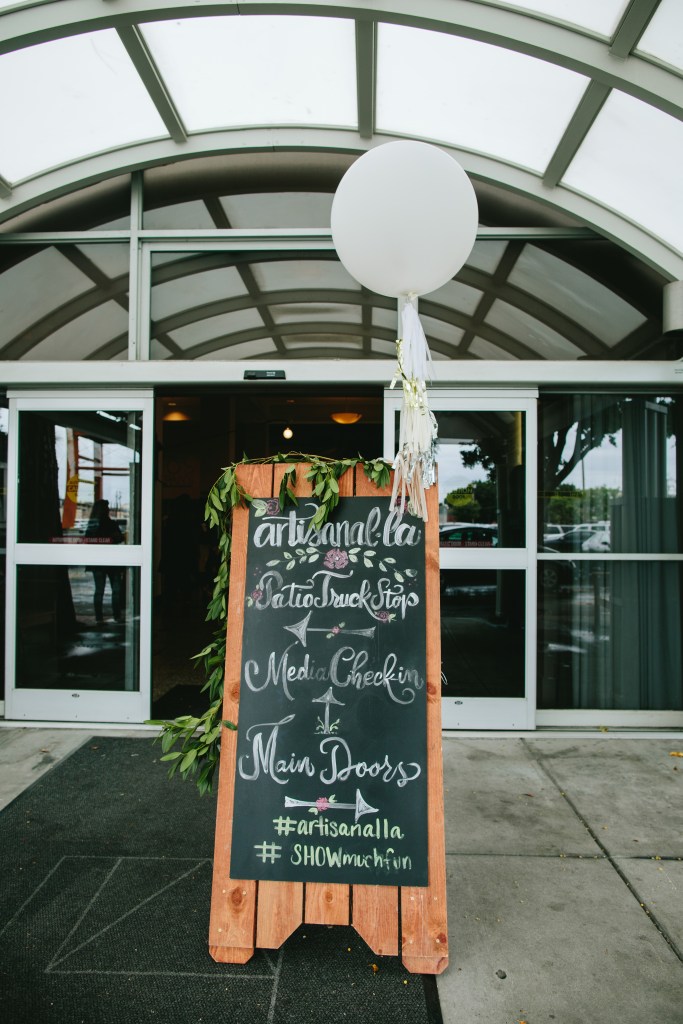 artisanal·la
Patio Truck Stop
Media Check-in
Main Doors
#artisanalla
# SHOWmuchfun